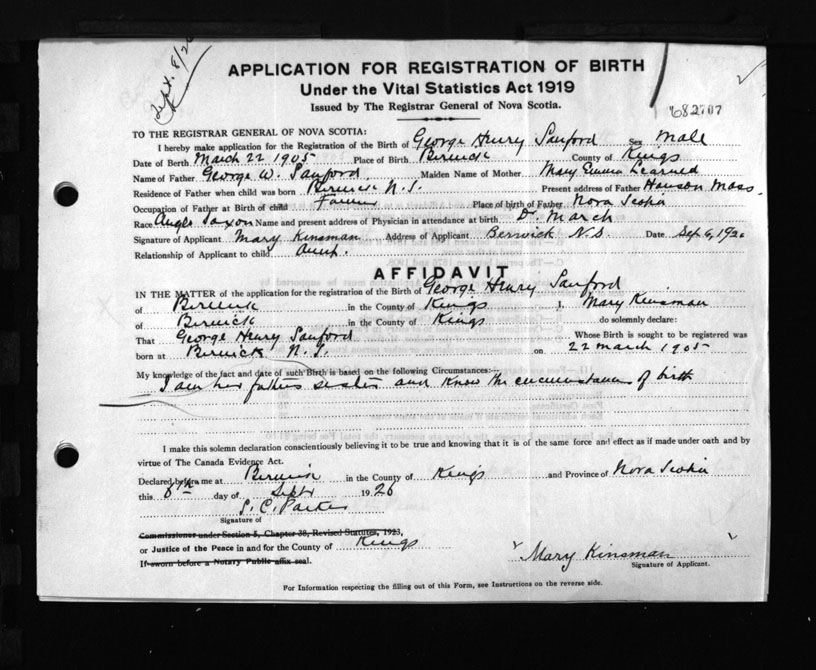 Sept. 8/26
APPLICATION FOR REGISTRATION OF BIRTH
Under the Vital Statistics Act 1919
Issued by The Registrar General of Nova Scotia.
682707
TO THE REGISTRAR GENERAL OF NOVA SCOTIA:
I hereby make application for the Registration of the Birth of George Henry Sanford Sex Male
Date of Birth March 22 1905 Place of Birth Berwick County of Kings
Name of Father George W. Sanford Maiden Name of Mother Mary Emma Learned
Residence of Father when child was born Berwick N.S. Present address of Father Mass.
Occupation of Father at Birth of child Farmer Place of birth of Father Nova Scotia
Race Anglo Saxon Name and present address of Physician in attendance at birth Dr. March
Signature of Applicant Mary Kinsman Address of Applicant Berwick N.S. Date Sep 6, 192
Relationship of Applicant to child Aunt.
AFFIDAVIT
IN THE MATTER of the application for the registration of the Birth of George Henry Sanford
of Berwick in the County of Kings I, Mary Kinsman
of Berwick in the County of Kings do solemnly declare:
That George Henry Sanford Whose Birth is sought to be registered was
born at Berwick N.S. on 22 March 1905
My knowledge of the fact and date of such Birth is based on the following Circumstances:—
I am his fathers sister and know the circumstances of birth
I make this solemn declaration conscientiously believing it to be true and knowing that it is of the same force and effect as if made under oath and by
virtue of The Canada Evidence Act.
Declared before me at Berwick in the County of Kings and Province of Nova Scotia
this 8th day of Sept 1926
S. C. Parker
Signature of
Commissioner under Section 5, Chapter 38, Revised Statutes, 1923,
or Justice of the Peace in and for the County of Kings
If sworn before a Notary Public affix seal.
Mary Kinsman
Signature of Applicant.
For Information respecting the filling out of this Form, see Instructions on the reverse side.